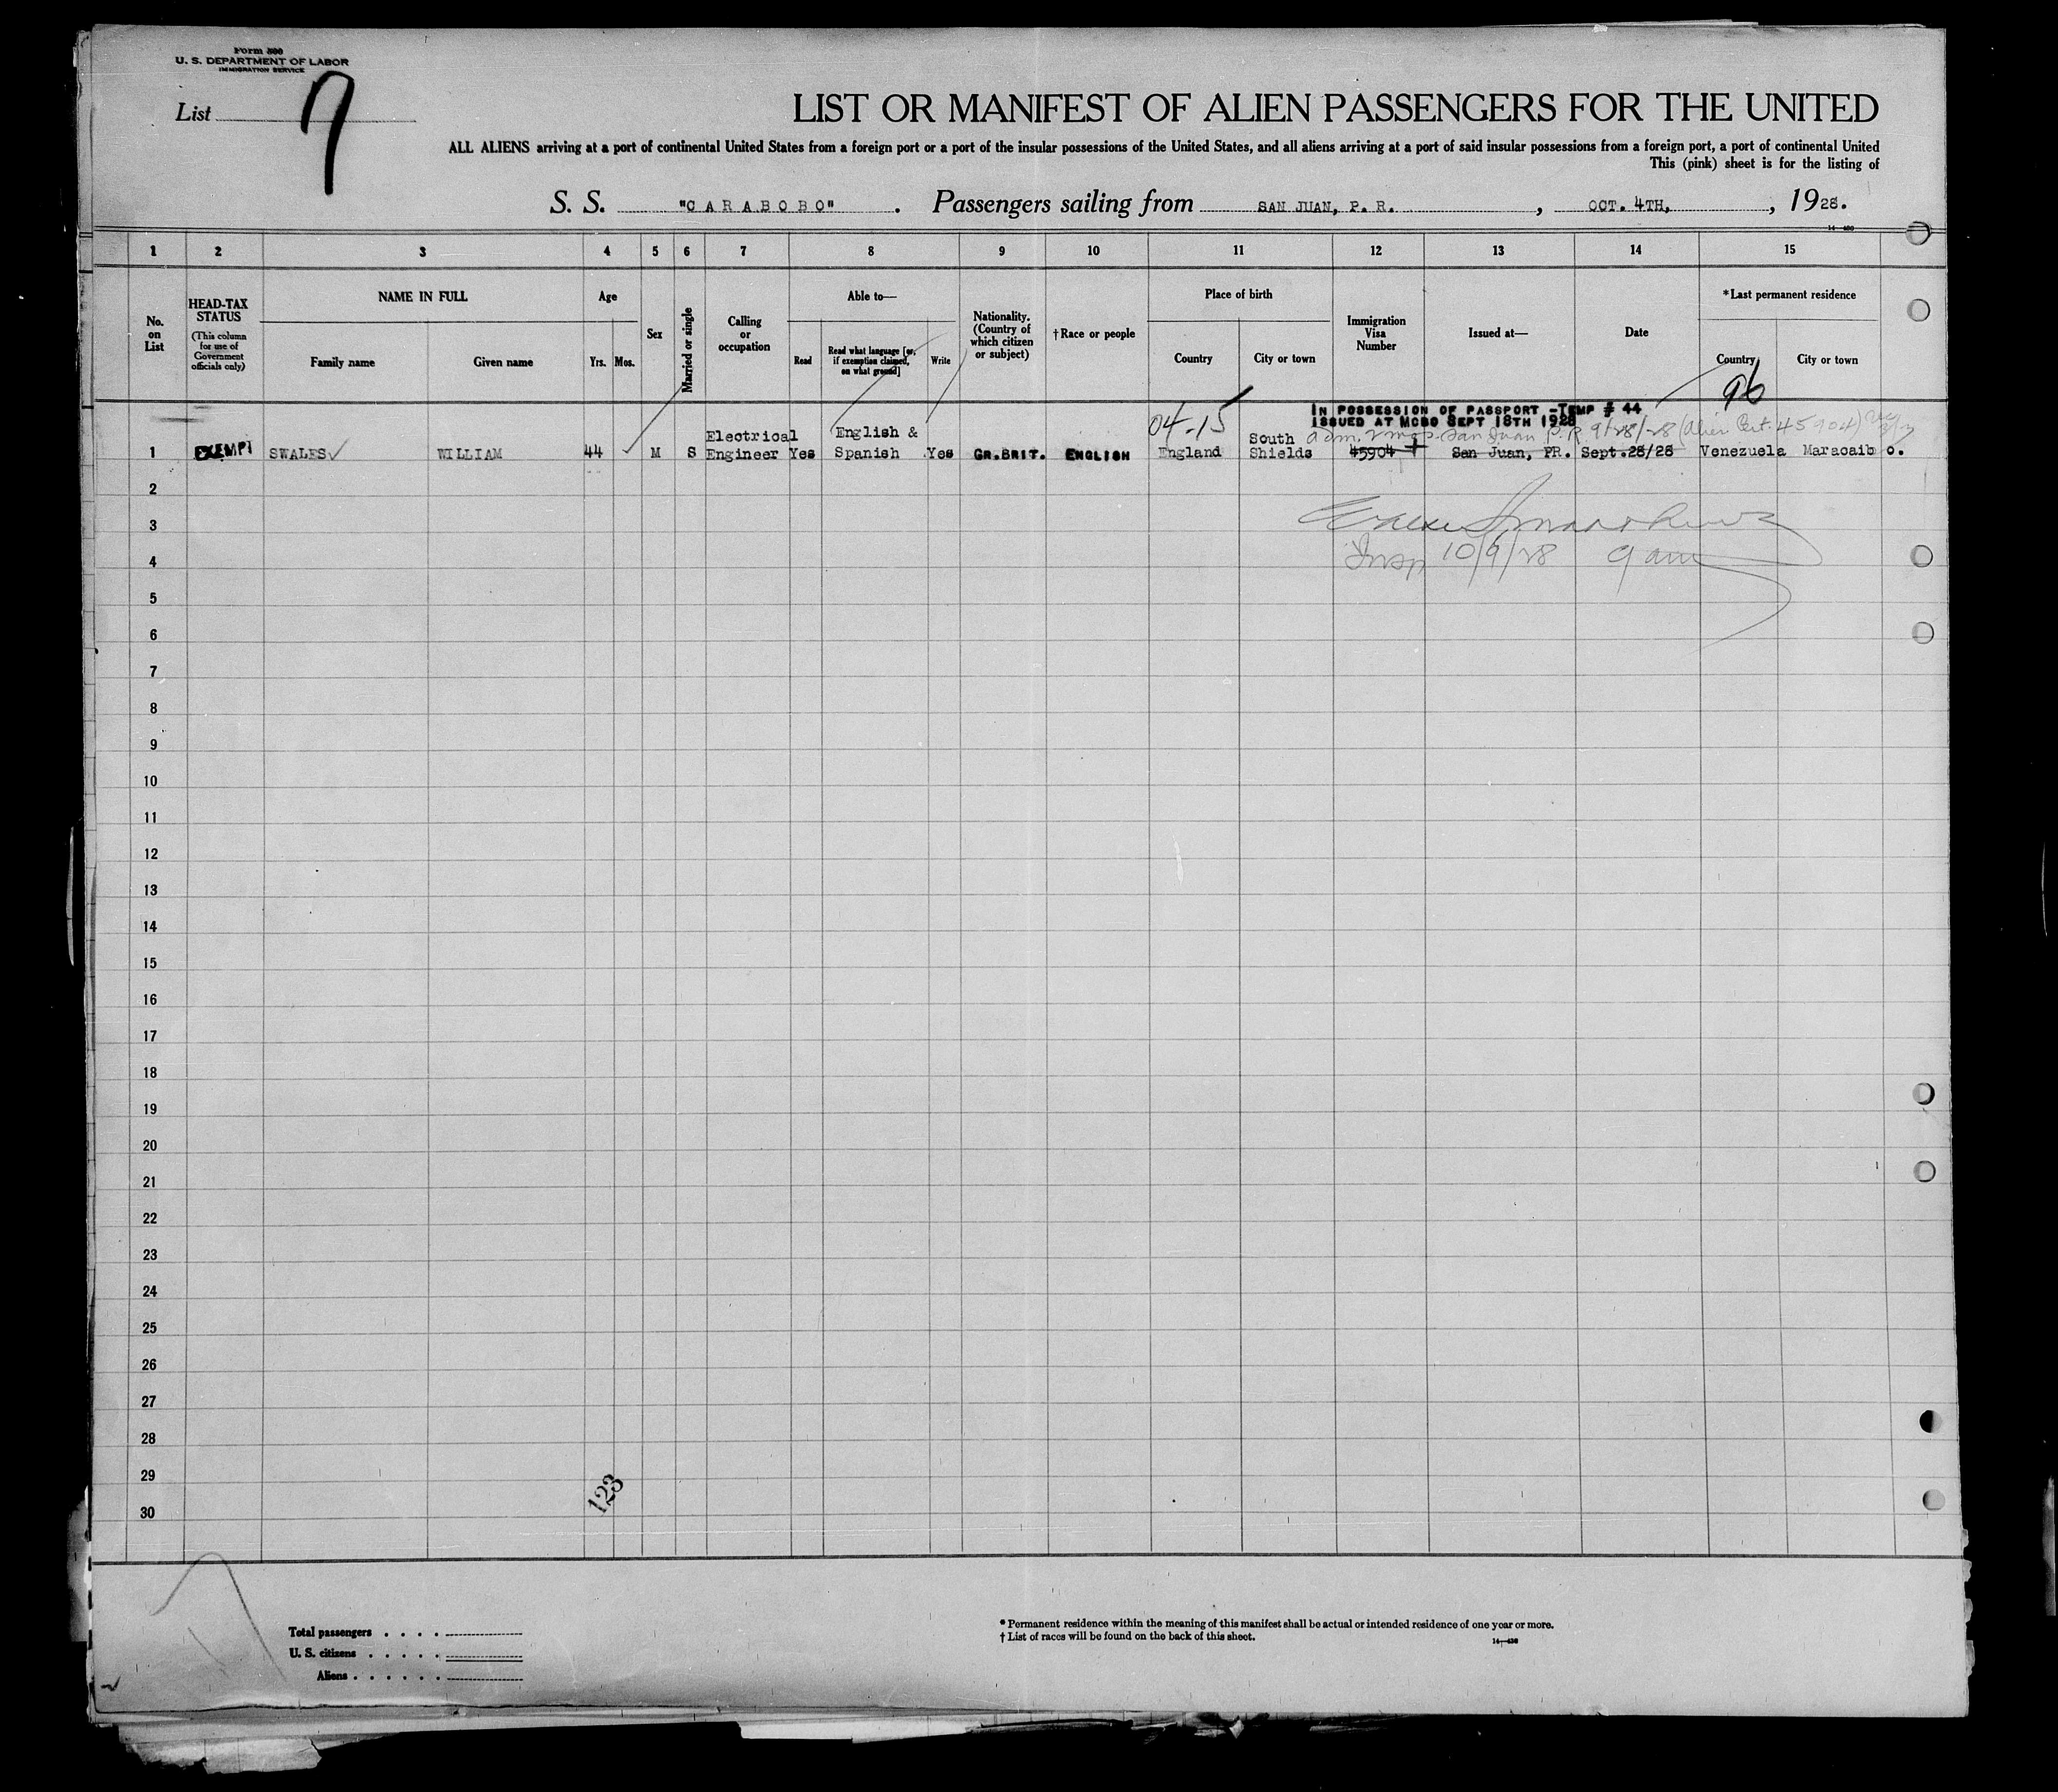 Form 500
U. S. DEPARTMENT OF LABOR
IMMIGRATION SERVICE
List 7
LIST OR MANIFEST OF ALIEN PASSENGERS FOR THE UNITED
ALL ALIENS arriving at a port of continental United States from a foreign port or a port of the insular possessions of the United States, and all aliens arriving at a port of said insular possessions from a foreign port, a port of continental United
This (pink) sheet is for the listing of
S. S. "CARABOBO". Passengers sailing from SAN JUAN, P. R., OCT. 4TH, , 1928.
1 2 3 4 5 6 7 8 9 10 11 12 13 14 15
No. on List
HEAD-TAX STATUS
(This column for use of Government officials only)
NAME IN FULL
Family name Given name
Age
Yrs. Mos.
Sex
Married or single
Calling or occupation
Able to—
Read
Read what language [or, if exemption claimed, on what ground]
Write
Nationality. (Country of which citizen or subject)
†Race or people
Place of birth
Country City or town
Immigration Visa Number
Issued at—
Date
*Last permanent residence
Country City or town
96
04-15
IN POSSESSION OF PASSPORT -TEMP # 44
ISSUED AT MCBO SEPT 18TH 1928
San Juan P.R. 9/28/28 (Alien Cert. 45904)
1 EXEMPT SWALES WILLIAM 44 M S Electrical Engineer Yes English & Spanish Yes GR.BRIT. ENGLISH England South Shields 45904 San Juan, PR. Sept.28/28 Venezuela Maracaibo.
2
3
Insp 10/9/28 9 am
4
5
6
7
8
9
10
11
12
13
14
15
16
17
18
19
20
21
22
23
24
25
26
27
28
29
123
30
Total passengers . . . .
U. S. citizens . . . . .
Aliens . . . . . .
* Permanent residence within the meaning of this manifest shall be actual or intended residence of one year or more.
† List of races will be found on the back of this sheet.